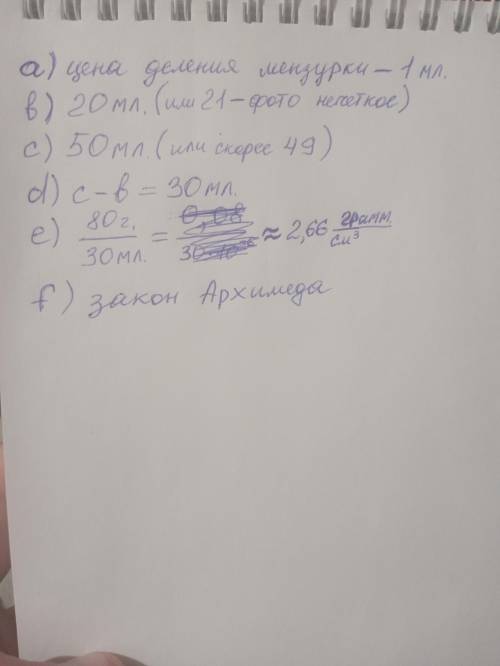 а) цена деления мензурки – 1 мл.
в) 20 мл. (или 21 – фото нечеткое)
с) 50 мл. (или скорее 49)
d) с – в = 30 мл.
е) 80 г. / 30 мл. = ≈ 2,66 грамм / см³
f) закон Архимеда